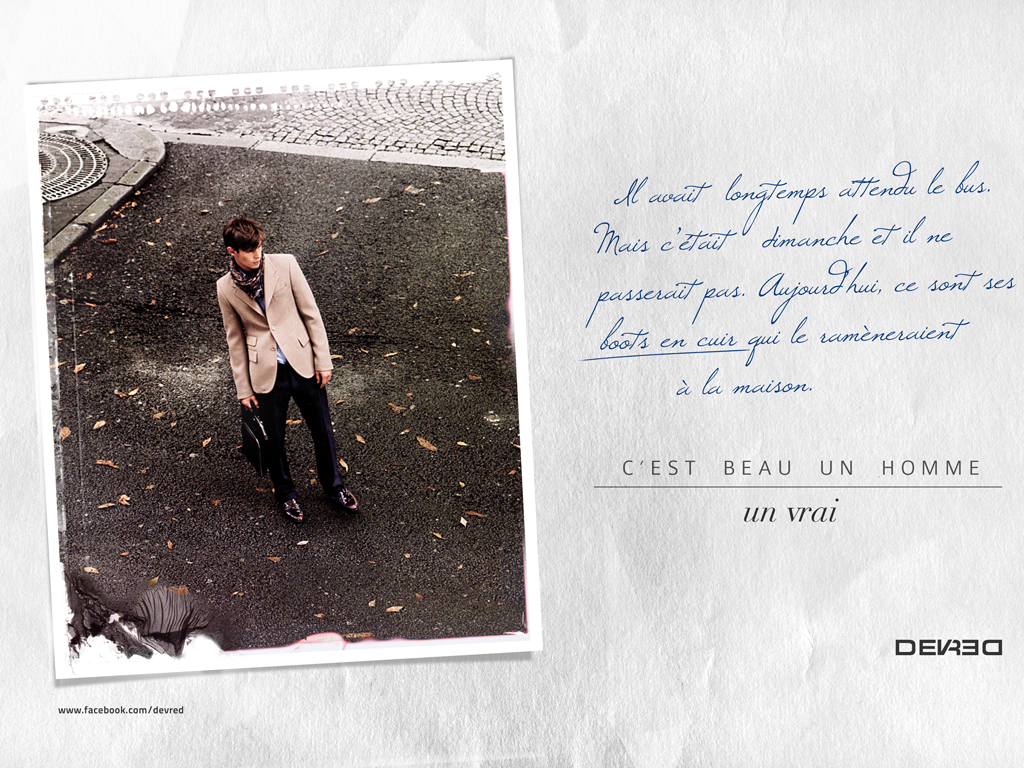 Il avait longtemps attendu le bus.
Mais c'était dimanche et il ne
passerait pas. Aujourd'hui, ce sont ses
boots en cuir qui le ramèneraient
à la maison.
C'EST BEAU UN HOMME
un vrai
DEVRED
www.facebook.com/devred